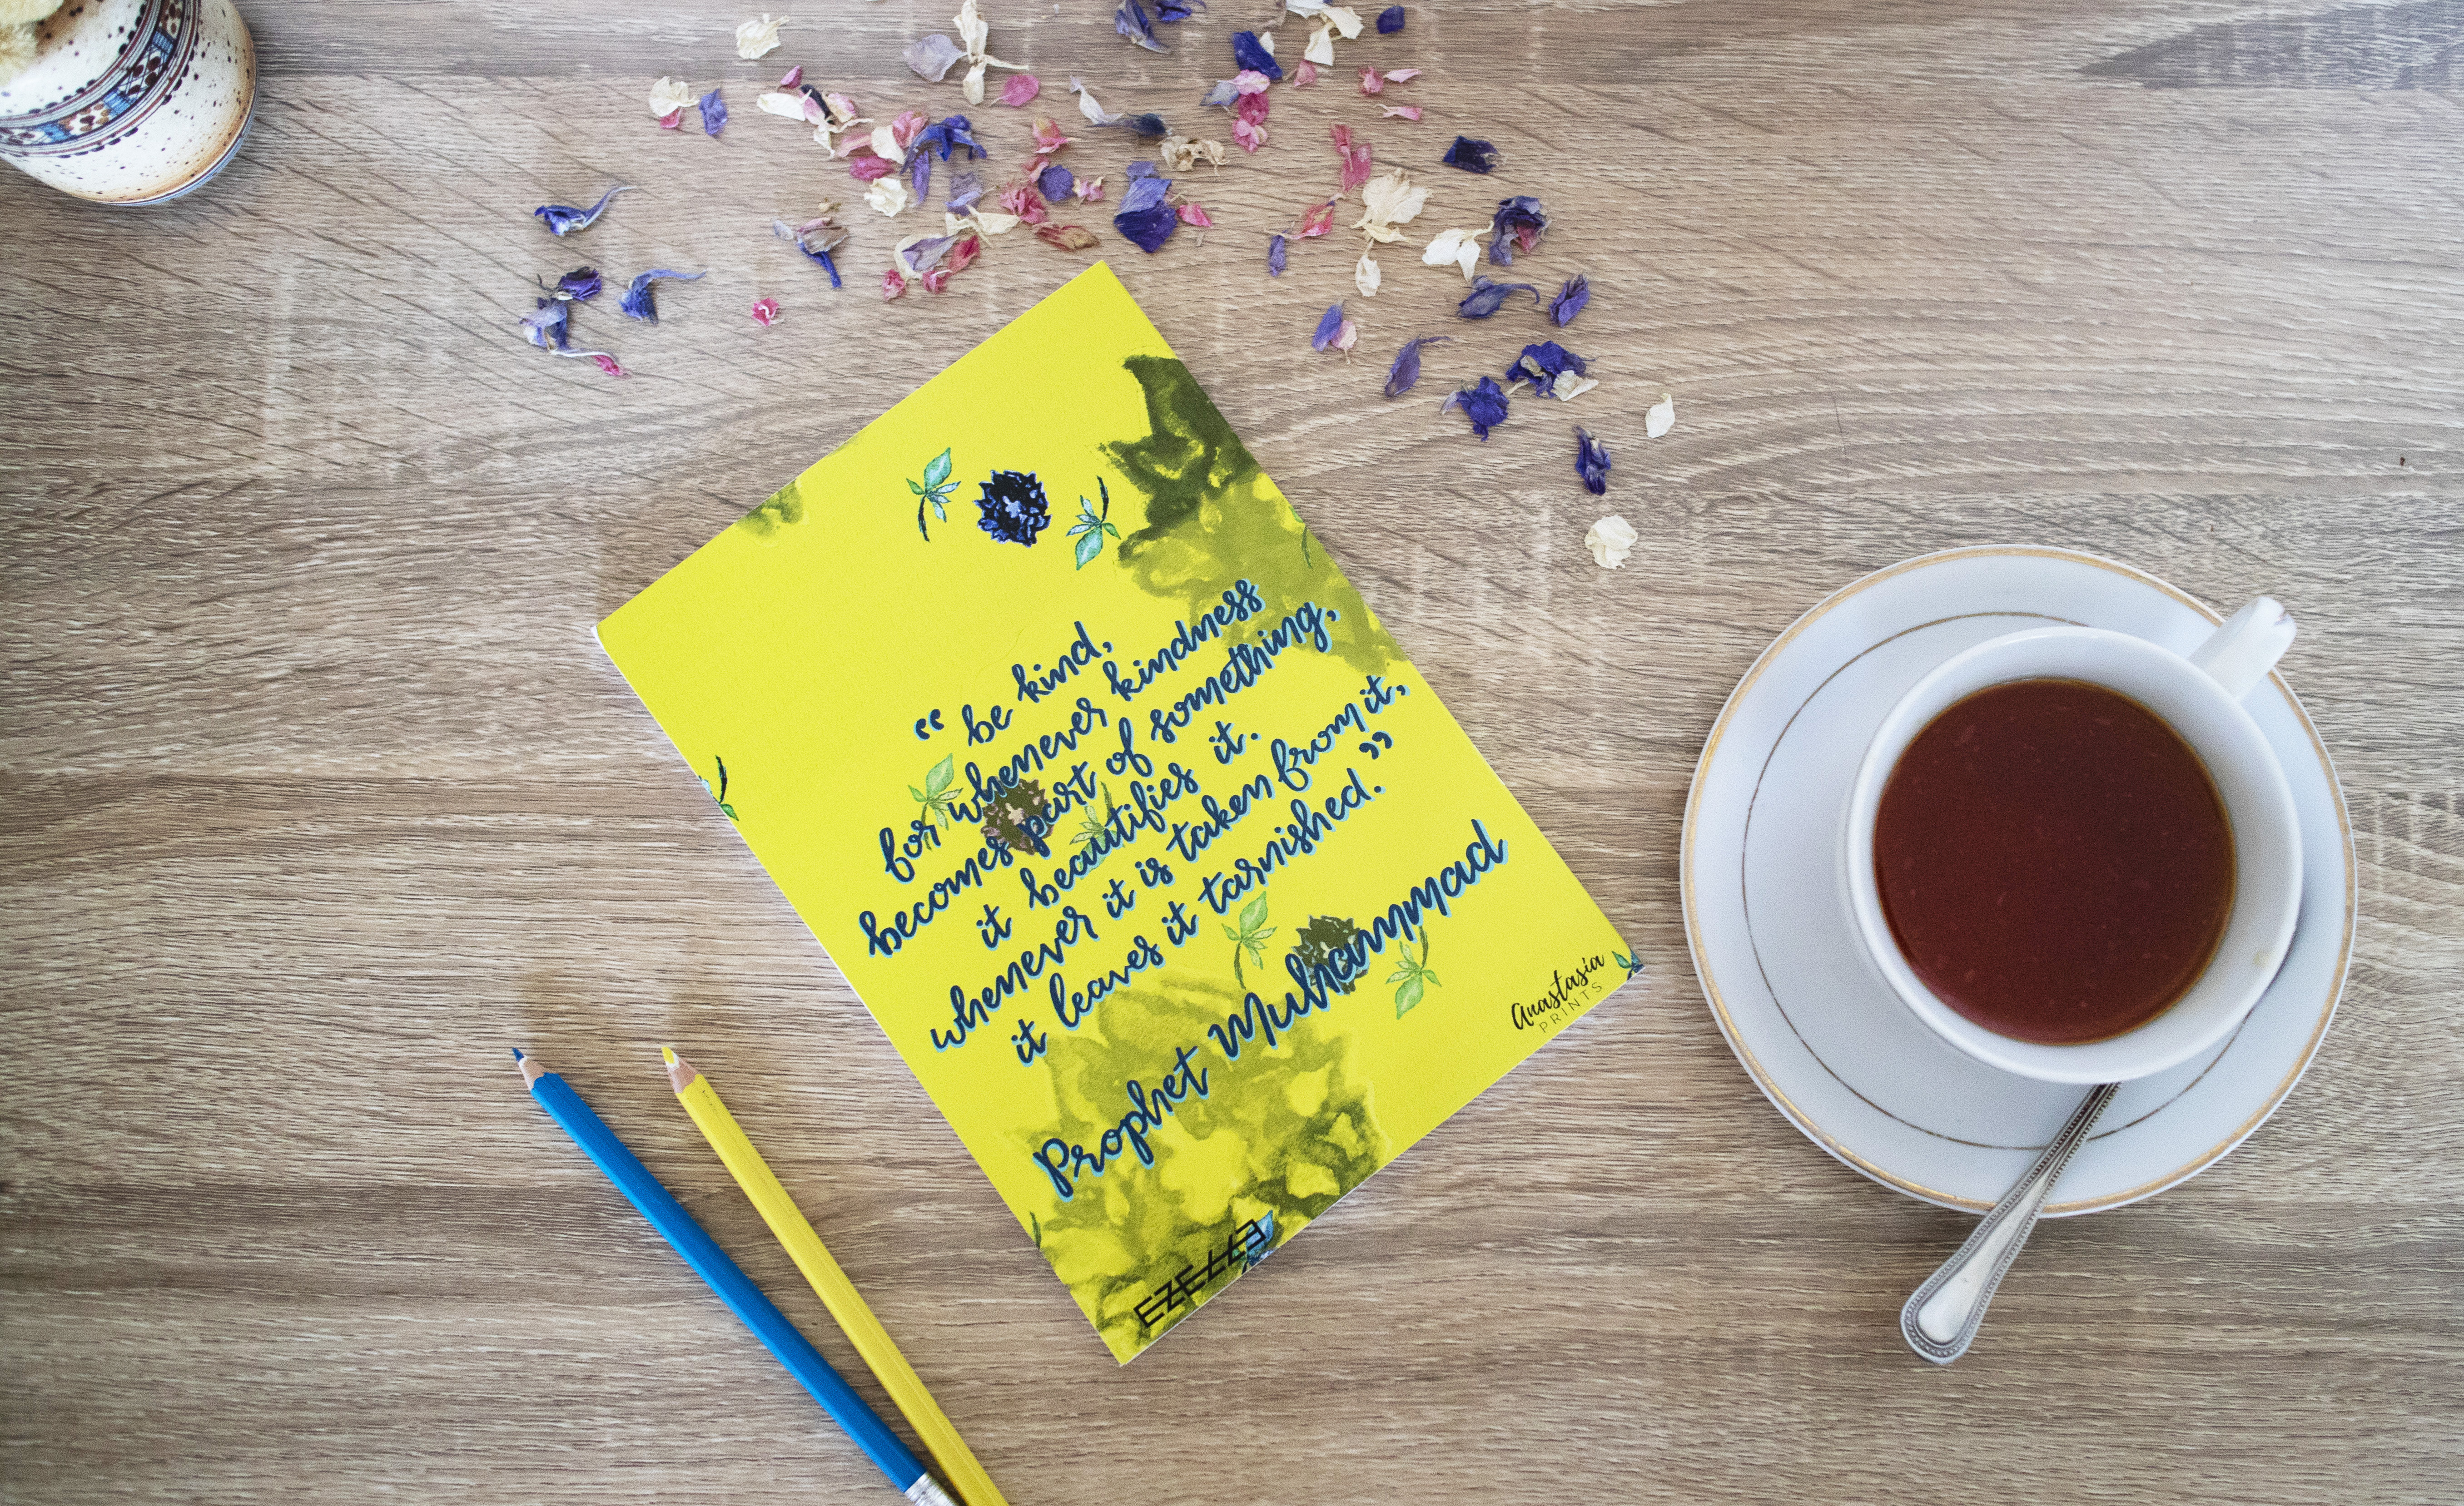 “ be kind,
for whenever kindness
becomes part of something,
it beautifies it.
whenever it is taken from it,
it leaves it tarnished. ”
Prophet Muhammad
Anastasia
PRINTS
EZELLE